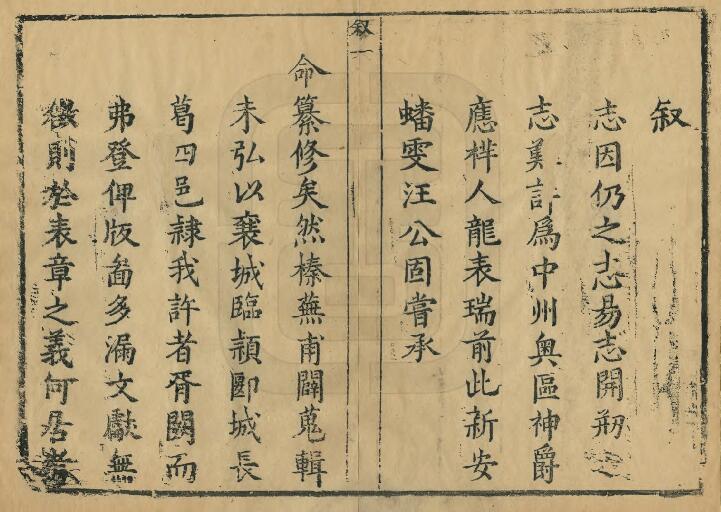 叙
志因仍之志易志開剏之
志奚許爲中州奥區神爵
應柈人龍表瑞前此新安
蟠雯汪公固嘗承
叙一
命纂修矣然榛蕪甫闢蒐輯
未弘以襄城臨潁郾城長
葛四邑隷我許者胥闕而
弗登俾版啚多漏文獻無
徵則於表章之義何居